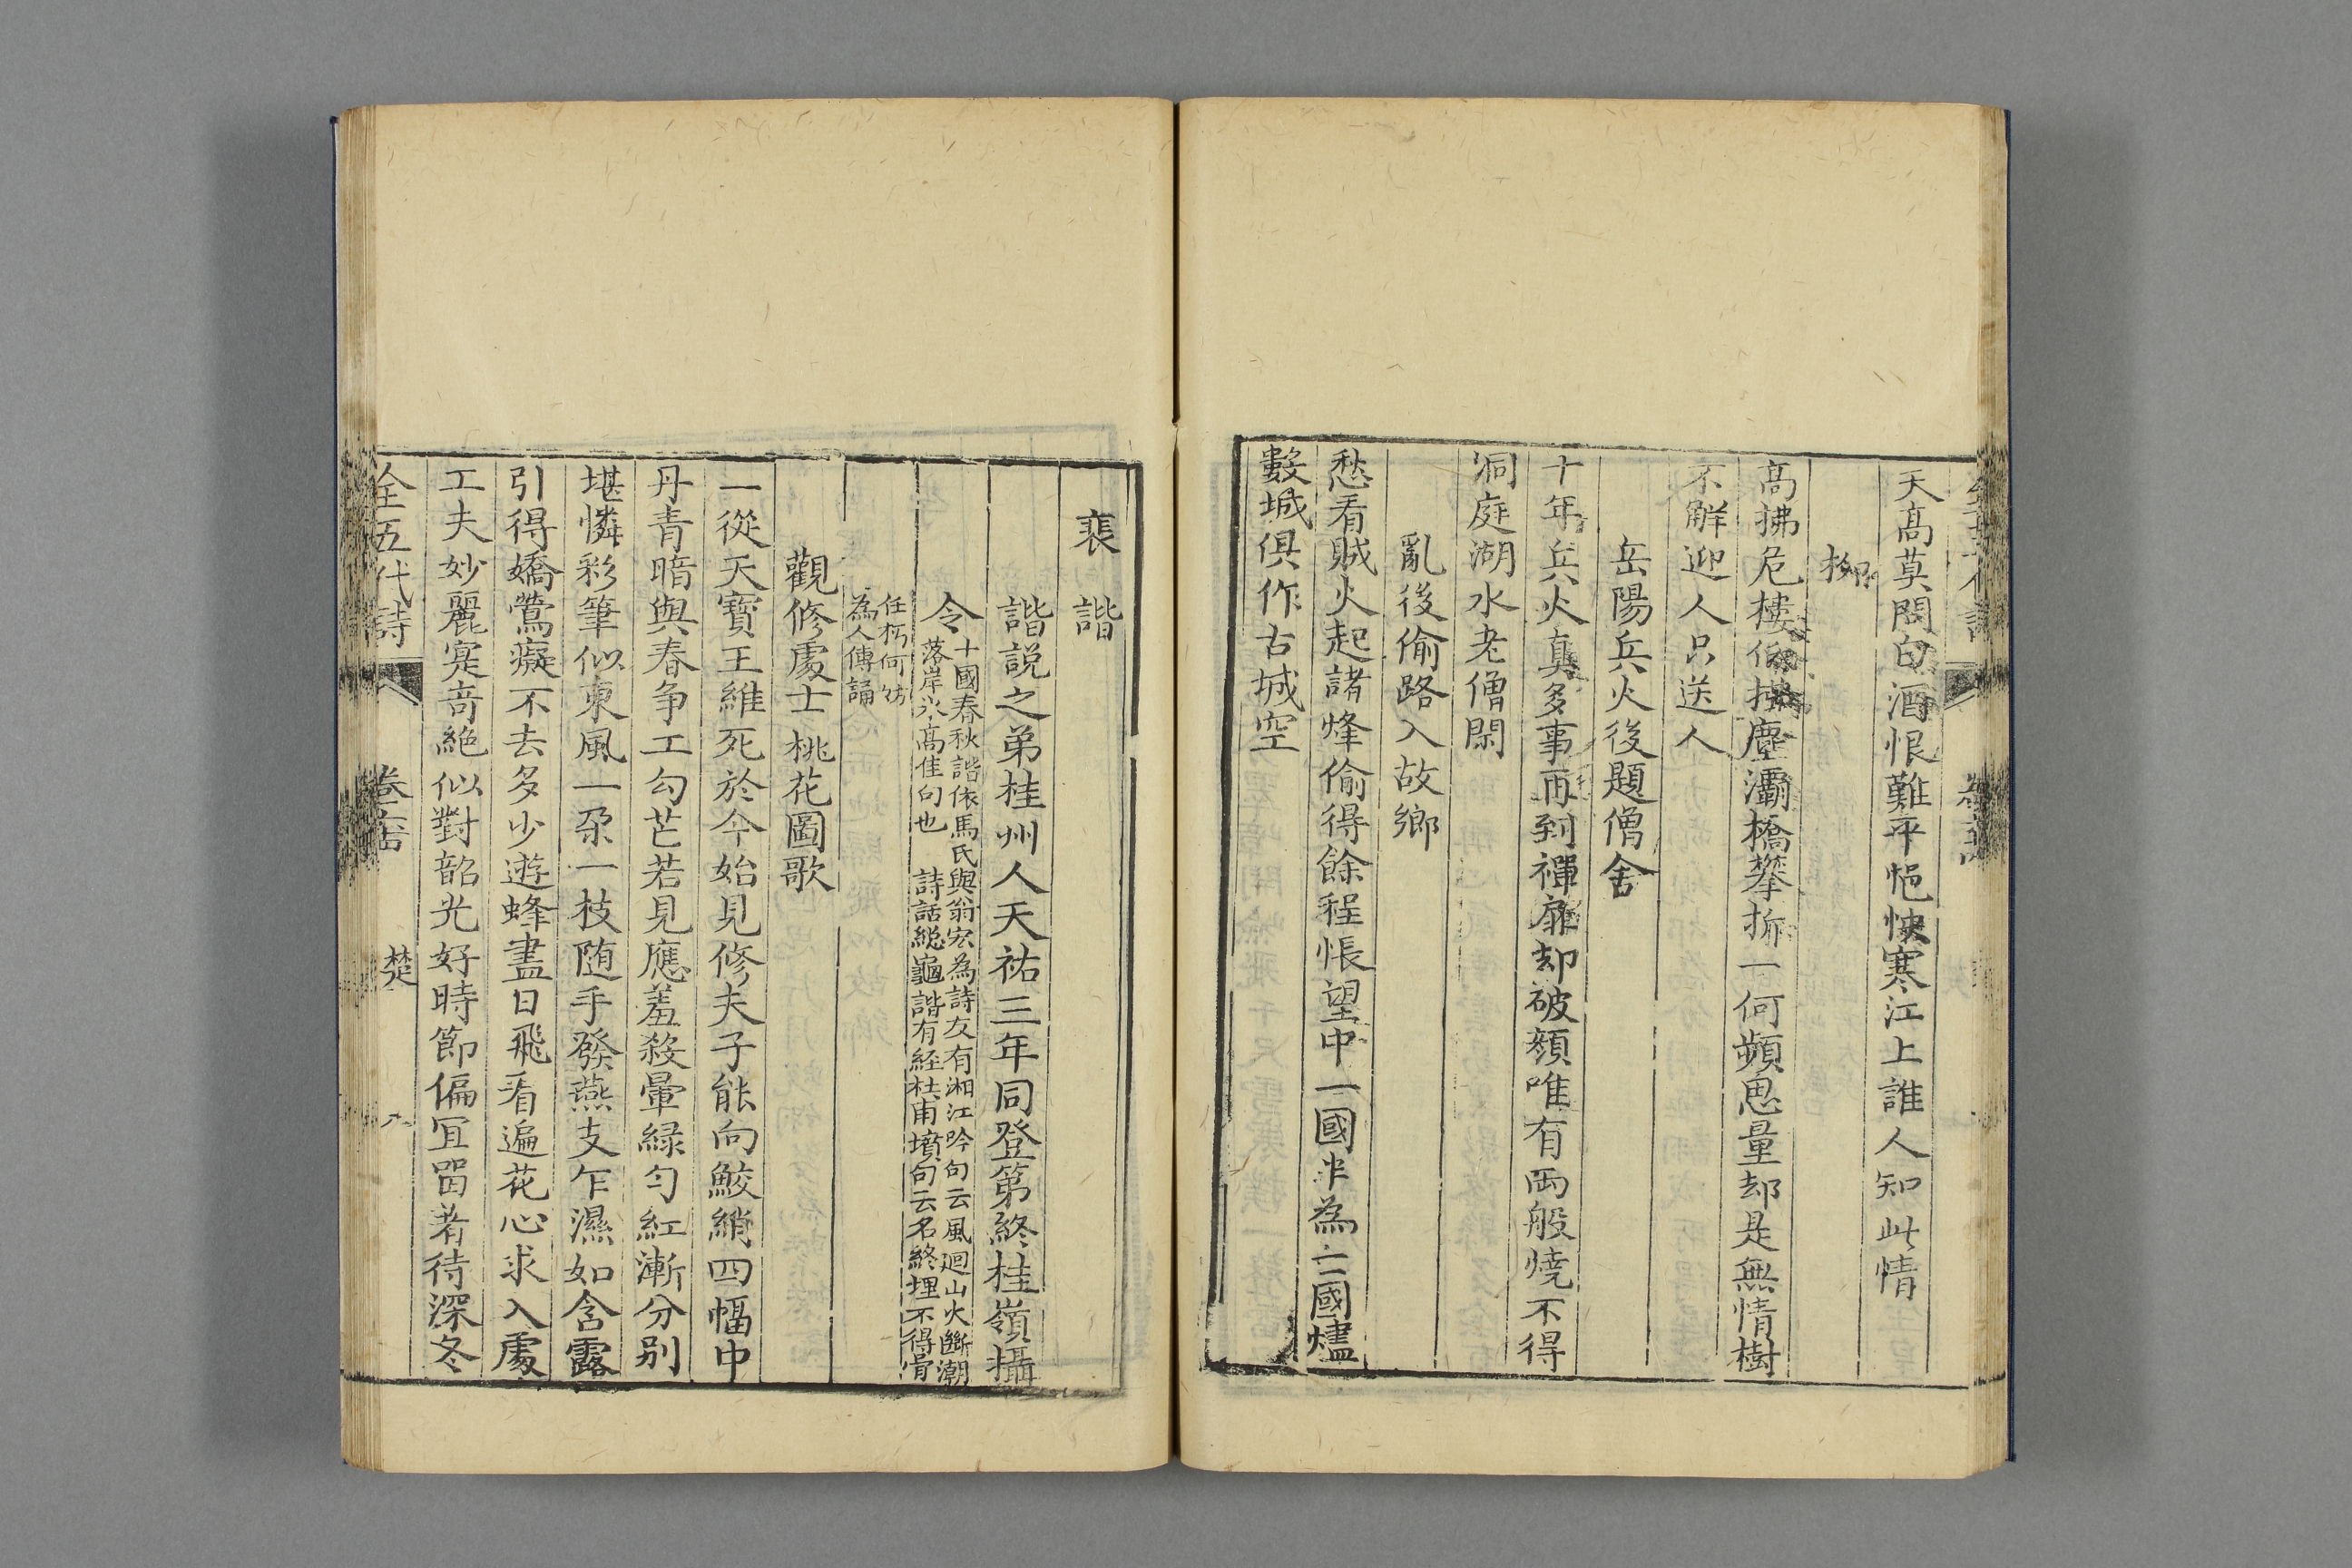 天高莫問白酒恨難平悒怏寒江上誰人知此情
柳
高拂危樓低拂塵灞橋攀折一何頻思量却是無情樹
不解迎人只送人
岳陽兵火後題僧舍
十年兵火真多事再到禪扉却破顏唯有兩般燒不得
洞庭湖水老僧閑
亂後偷路入故鄉
愁看賊火起諸烽偷得餘程悵望中一國半為亡國燼
數城俱作古城空
裴諧
諧説之弟桂州人天祐三年同登第終桂嶺攝
令
十國春秋諧依馬氏與翁宏為詩友有湘江吟句云風迴山火斷潮
落岸氷高佳句也 詩話總龜諧有經杜甫墳句云名終埋不得骨
任朽何妨
為人傳誦
觀修處士桃花圖歌
一從天寶王維死於今始見修夫子能向鮫綃四幅中
丹青暗與春争工勾芒若見應羞殺暈緑勻紅漸分別
堪憐彩筆似東風一朶一枝随手發燕支乍濕如含露
引得嬌鶯癡不去多少遊蜂盡日飛看遍花心求入處
工夫妙麗寔竒絶似對韶光好時節偏宜畱著待深冬
全五代詩
楚